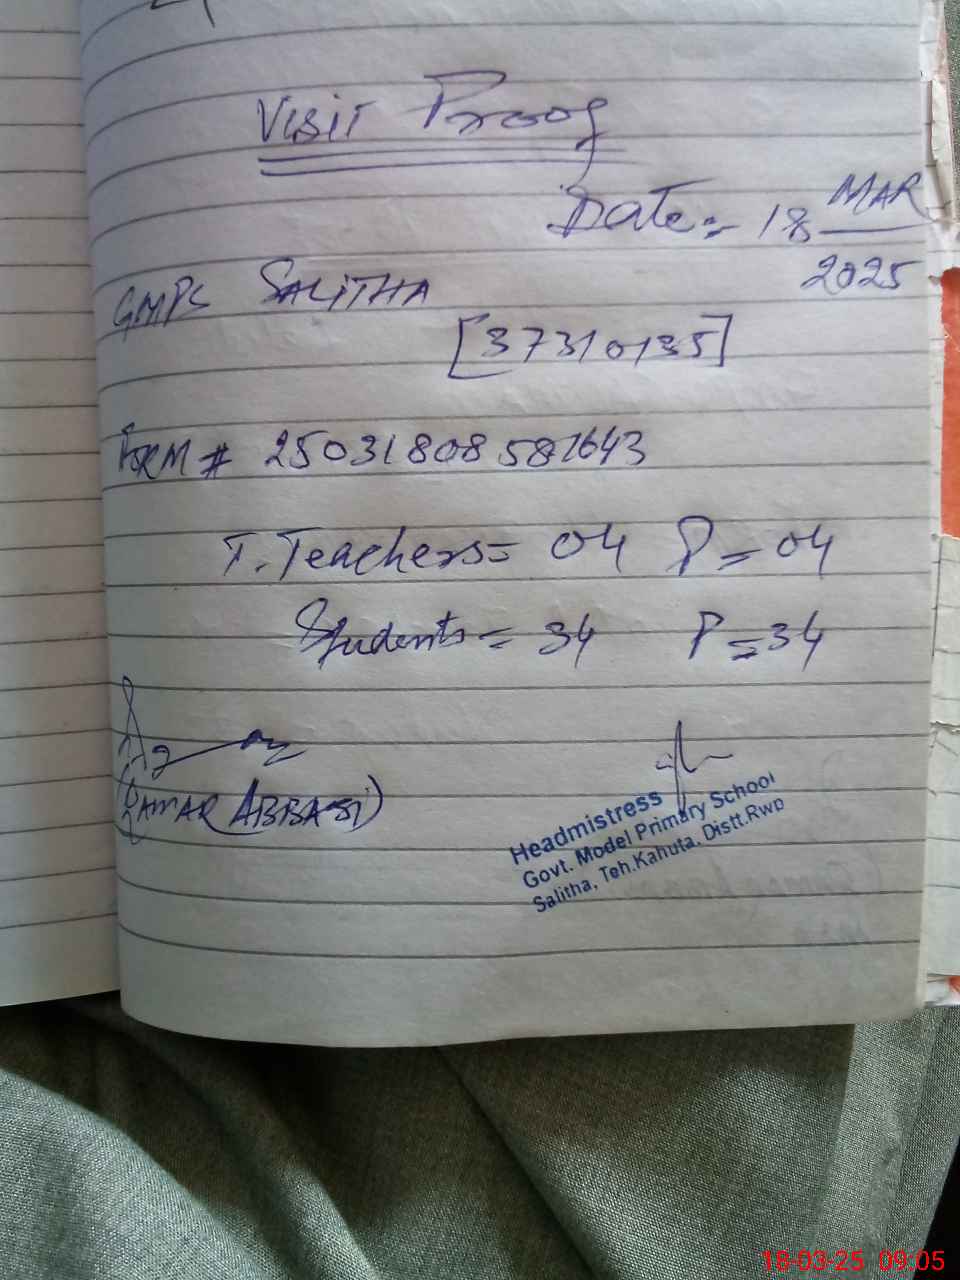 Visit Proof
Date:- 18 MAR
2025
GMPS SALITHA
[37310135]
FORM # 25031808581643
T. Teachers = 04 P = 04
Students = 34 P = 34
(QAMAR ABBASI)
Headmistress
Govt. Model Primary School
Salitha, Teh.Kahuta, Distt.Rwp
18-03-25 09:05